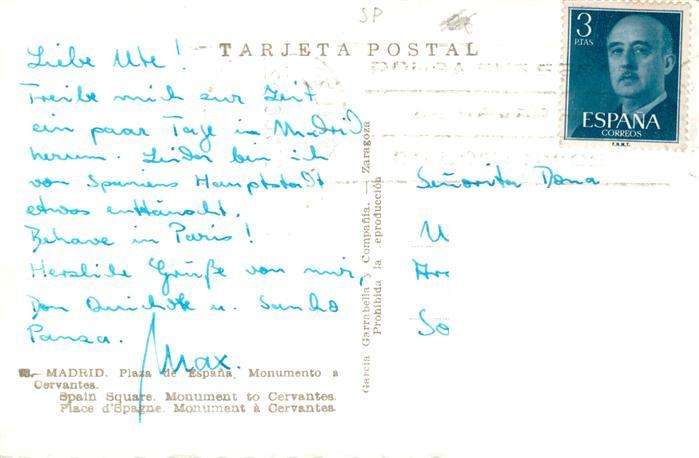 SP
TARJETA POSTAL
3
PTAS
ESPAÑA
CORREOS
F.N.M.T.
Liebe Ute!
Treibe mich zur Zeit
ein paar Tage in Madrid
herum. Leider bin ich
von Spaniens Hauptstadt
etwas enttäuscht.
Behave in Paris!
Herzliche Grüße von mir,
Don Quichote u. Sancho
Pansa.
Max.
MADRID. Plaza de España. Monumento a
Cervantes.
Spain Square. Monument to Cervantes.
Place d'Espagne. Monument à Cervantes.
García Garrabella y Compañía. — Zaragoza
Prohibida la reproducción
Señorita Dona
U
So